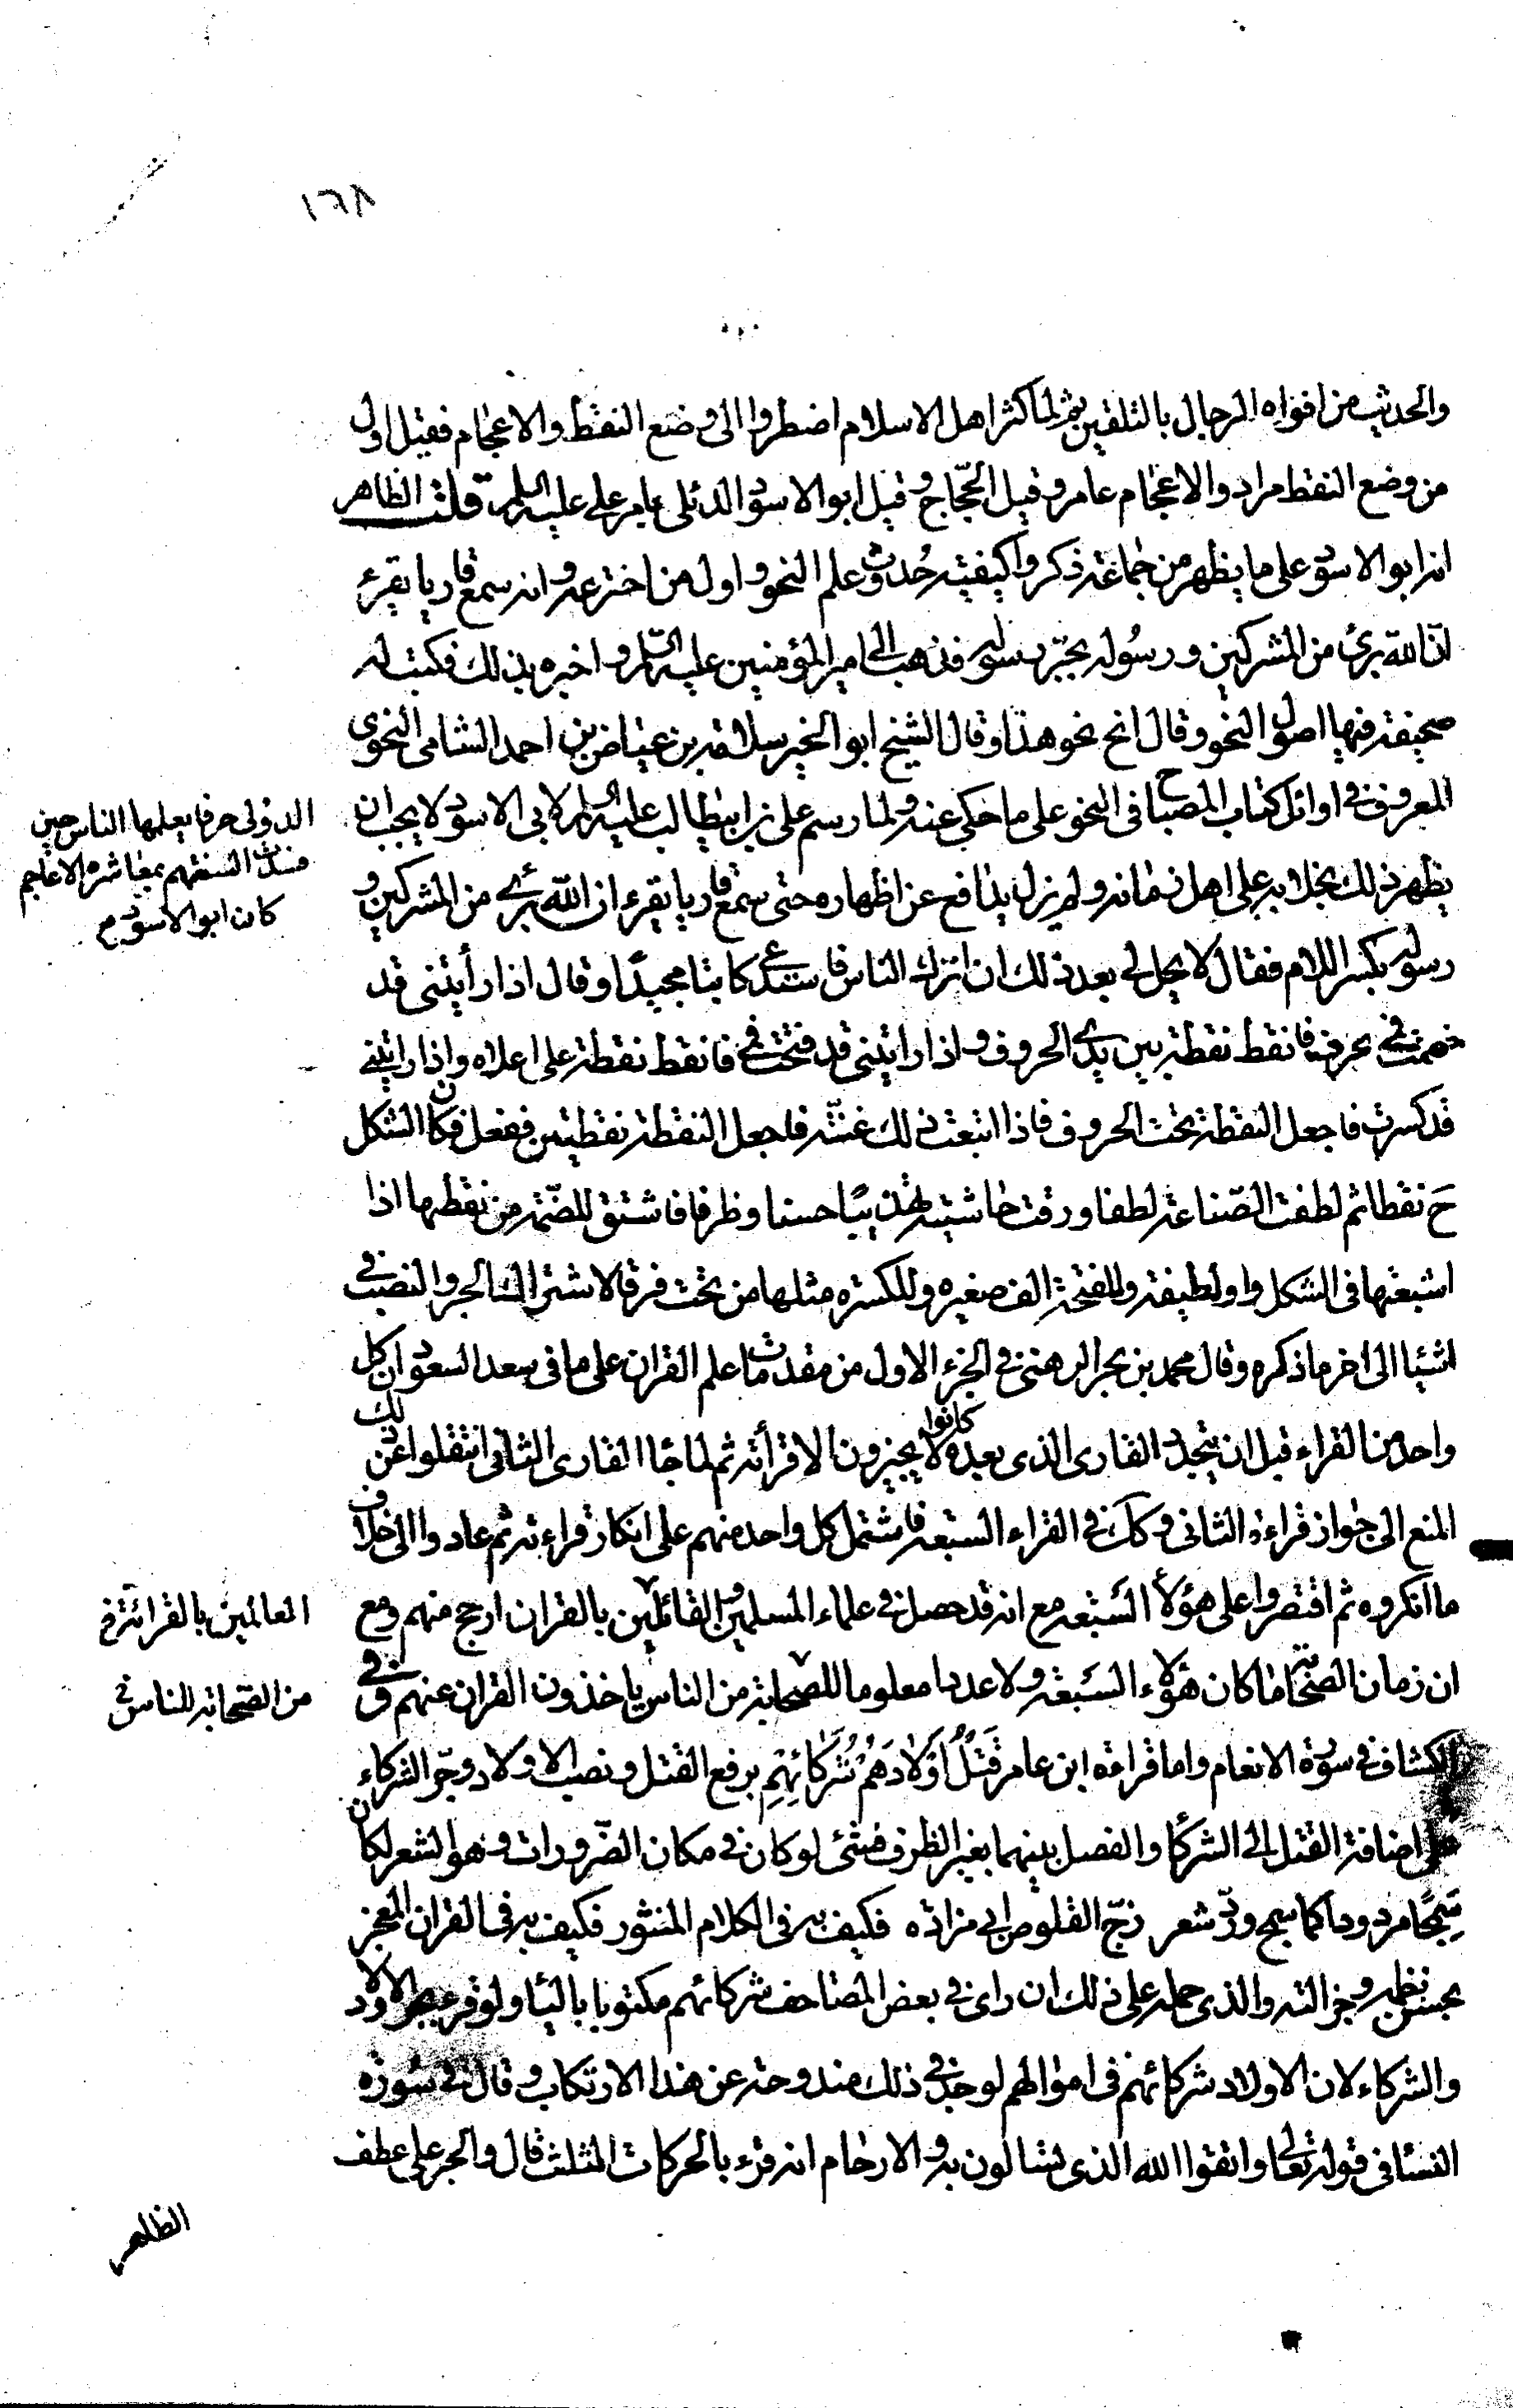 ١٦٨
والحديث من افواه الرجال بالتلقين ثم لما كثر اهل الاسلام اضطروا الى وضع النقط والاعجام فقيل اول
من وضع النقط مراد والاعجام عامر وقيل الحجّاج وقيل ابو الاسود الدئلى بامر على عليه السلم قلت الظاهر
انه ابو الاسود على ما يظهر من جماعة ذكروا كيفية حُدوث علم النحو واول من اخترعه وانه سمع قاريا يقرء
انّ الله برئ من المشركين ورسُوله بجرّ رسوله فذهب الى امير المؤمنين عليه السّلم واخبره بذلك فكتب له
صحيفة فيها اصول النحو وقال انح نحو هذا وقال الشيخ ابو الخير سلامة بن عياض بن احمد الشامى النحوى
المعروف فى اوائل كتاب المصباح فى النحو على ما حكى عنه ولما رسم على بن ابيطالب عليه السلم لابى الاسود لا يحب ان
الدؤلى حرفا يعلمها الناس حين
فسدت السنتهم بمعاشره الاعاجم
كان ابو الاسود م
يظهر ذلك بخلا به على اهل زمانه ولم يزل يدافع عن اظهاره حتى سمع قاريا يقرء ان الله برئ من المشركين و
رسوله بكسر اللام فقال لا يحل لى بعد ذلك ان اترك الناس فاستدعى كاتبا مجيدًا وقال اذا رأيتنى قد
ضممت فمى بحرف فانقط نقطة بين يدى الحروف واذا رايتنى قد فتحت فمى فانقط نقطة على اعلاه واذا رايتنى
قد كسرت فاجعل النقطة تحت الحروف فاذا اتبعت ذلك غنّة فاجعل النقطة نقطتين ففعل فكان الشكل
ح نقطا ثم لطفت الصّناعة لطفا ورقت حاشيته تهذيبًا حسنا وظرفا فاشتق للضّمة من نقطها اذا
اشبعتها فى الشكل واو لطيفة وللفتحة الف صغيره وللكسره مثلها من تحت فرقا لاشتراك الجر والنصب فى
اشيا الى اخر ما ذكره وقال محمد بن بحر الرهنى فى الجزء الاول من مقدمات علم القران على ما فى سعد السعود ان كل
واحد من القراء قبل ان يتجدد القارى الذى بعده كانوا لا يجيزون الا قرأته ثم لما جا القارى الثانى انتقلوا عن ذلك
المنع الى جواز قراءة الثانى وكك فى القراء السبعة فاشتمل كل واحد منهم على انكار قراءته ثم عادوا الى خلاف
ما انكروه ثم اقتصروا على هؤلاء السّبعه مع انه قد حصل فى علماء المسلمين والقائلين بالقران ارجح منهم ومع
العالمين بالقرائة خ
ان زمان الصحابة ما كان هؤلاء السّبعة ولا عددا معلوما للصحابة من الناس ياخذون القران عنهم وفى
من الصّحابة للناس خ
الكشاف فى سورة الانعام واما قراءة ابن عامر قَتْلُ اَوْلادَهُمْ شُرَكَائِهِمِ برفع القتل ونصب الاولاد وجرّ الشركاء
على اضافة القتل الى الشركا والفصل بينهما بغير الظرف فشئ لو كان فى مكان الضّرورات وهو الشعر لكان
سَمِجًا مردودا كما سمج وردّ شعر زجّ القلوص ابى مزاده فكيف به فى الكلام المنثور فكيف به فى القران المعجز
بحسن نظمه وجزالته والذى حمله على ذلك ان راى فى بعض المصاحف شركائهم مكتوبا باليا ولو قرء بجر الاولاد
والشركاء لان الاولاد شركائهم فى اموالهم لوجد فى ذلك مندوحة عن هذا الارتكاب وقال فى سُورة
النسا فى قوله تعالى واتقوا الله الذى تسائلون به والارحام انه قرء بالحركات المثلث قال والجر على عطف
الظاهر